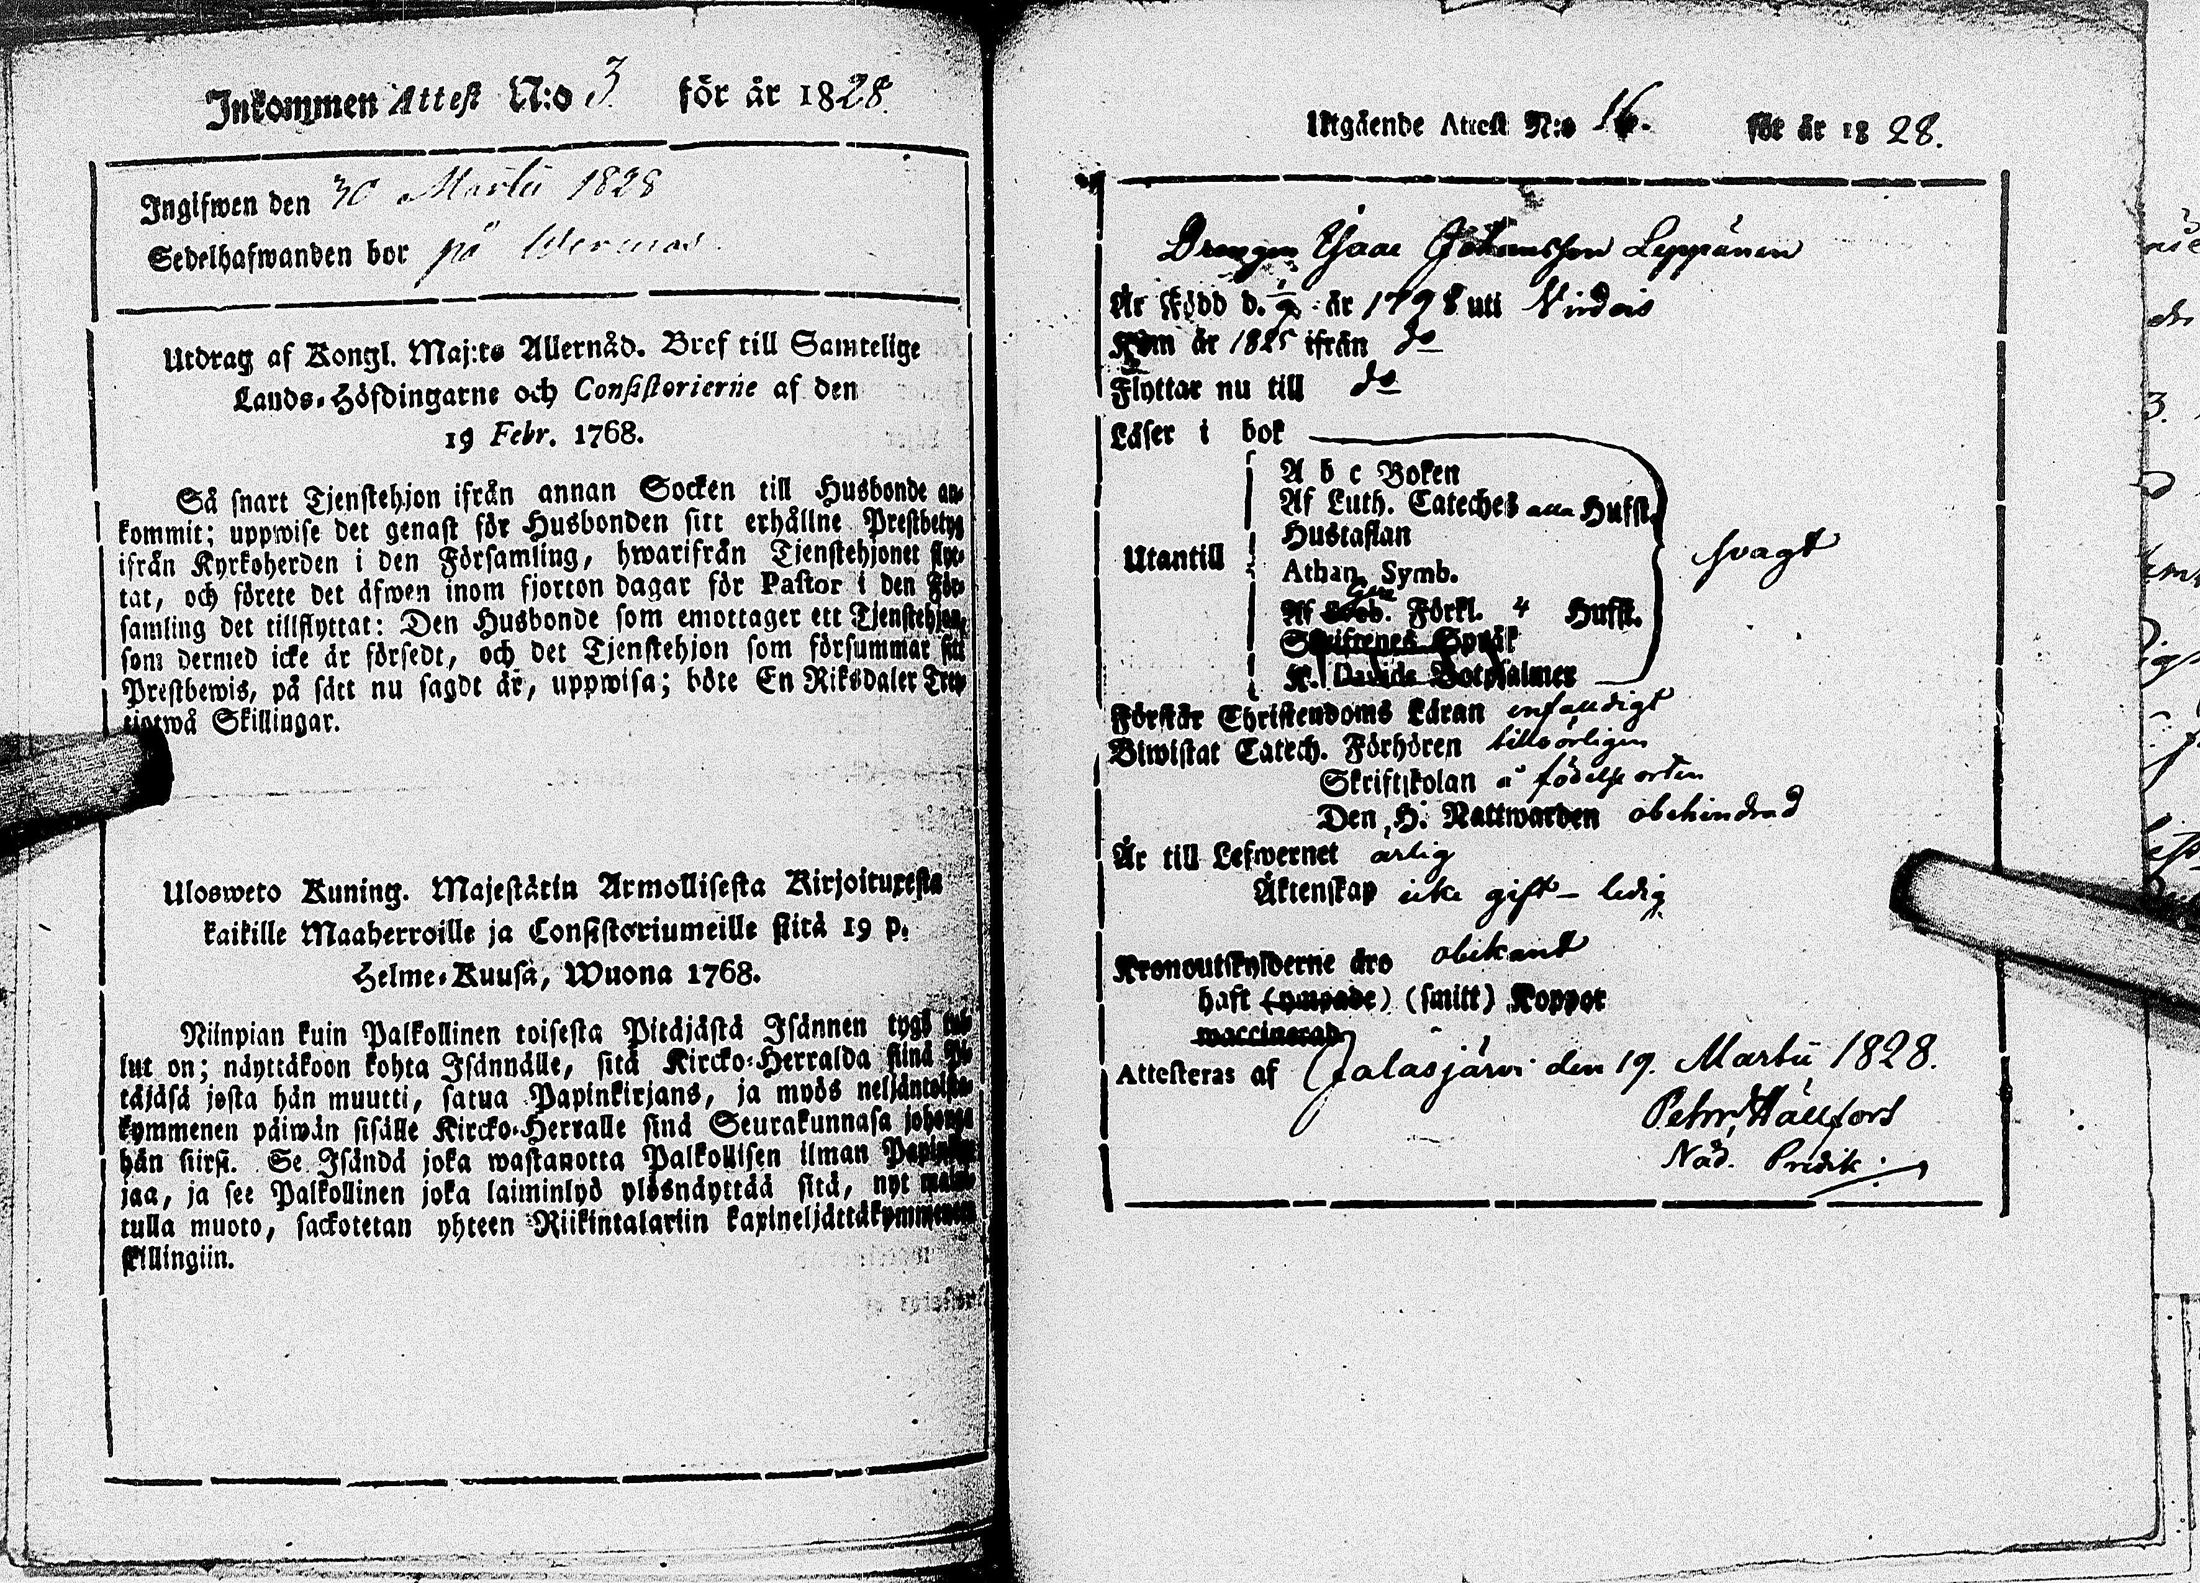 Inkommen Attest N:o 3. för år 1828.
Ingifwen den 30 Martii 1828
Sedelhafwanden bor på
Utdrag af Kongl. Maj:ts Allernåd. Bref till Samtelige
Lands-Höfdingarne och Consistorierne af den
19 Febr. 1768.
Så snart Tjenstehjon ifrån annan Socken till Husbonde an-
kommit; uppwise det genast för Husbonden sitt erhållne Prestbetyg
ifrån Kyrkoherden i den Församling, hwarifrån Tjenstehjonet flyt-
tat, och förete det äfwen inom fjorton dagar för Pastor i den För-
samling det tillflyttat: Den Husbonde som emottager ett Tjenstehjon,
som dermed icke är försedt, och det Tjenstehjon som försummar sitt
Prestbewis, på sätt nu sagdt är, uppwisa; böte En Riksdaler Tret-
tiotwå Skillingar.
Ulosweto Kuning. Majestätin Armollisesta Kirjoituxesta
kaikille Maaherroille ja Consistoriumeille siitä 19 p.
Helme-Kuusa, Wuona 1768.
Niinpian kuin Palkollinen toisesta Pitäjästä Isännen tygö tul-
lut on; näyttäkoon kohta Isännälle, sitä Kircko-Herralda siinä Pi-
täjäsä josta hän muutti, satua Papinkirjans, ja myös neljäntoista-
kymmenen päiwän sisälle Kircko-Herralle sinä Seurakunnasa johonga
hän siirsi. Se Isändä joka wastanotta Palkollisen ilman Papinkir-
jaa, ja see Palkollinen joka laiminlyö ylösnäyttää sitä, nyt
tulla muoto, sackotetan yhteen Riikintalariin kaxineljättäkymmenen
skillingiin.
Utgående Attest N:o 16. för år 1828.
Drengen Isaac Johansson Leppänen
Är född d. år 1798 uti Virdois
Kom år 1825 ifrån do
Flyttar nu till do
Läser i bok
A b c Boken
Af Luth. Cateches alla Hufst.
Hustaflan
Utantill svagt
Athan. Symb.
Af Förkl. 4 Hufst.
Skriftenes Språk
K. Davids Botpsalmer
Förstår Christendoms Läran enfaldigt
Biwistat Catech. Förhören
Skriftskolan å födelse orten
Den H. Nattwarden obehindrad
Är till Lefwernet ärlig
Äktenskap icke gift – ledig
Kronoutskylderne äro obekant
haft (ympade) (smitt) Koppor
waccinerad
Attesteras af Jalasjärvi den 19. Martii 1828.
Petter Hällfors
Nåd. Predik.